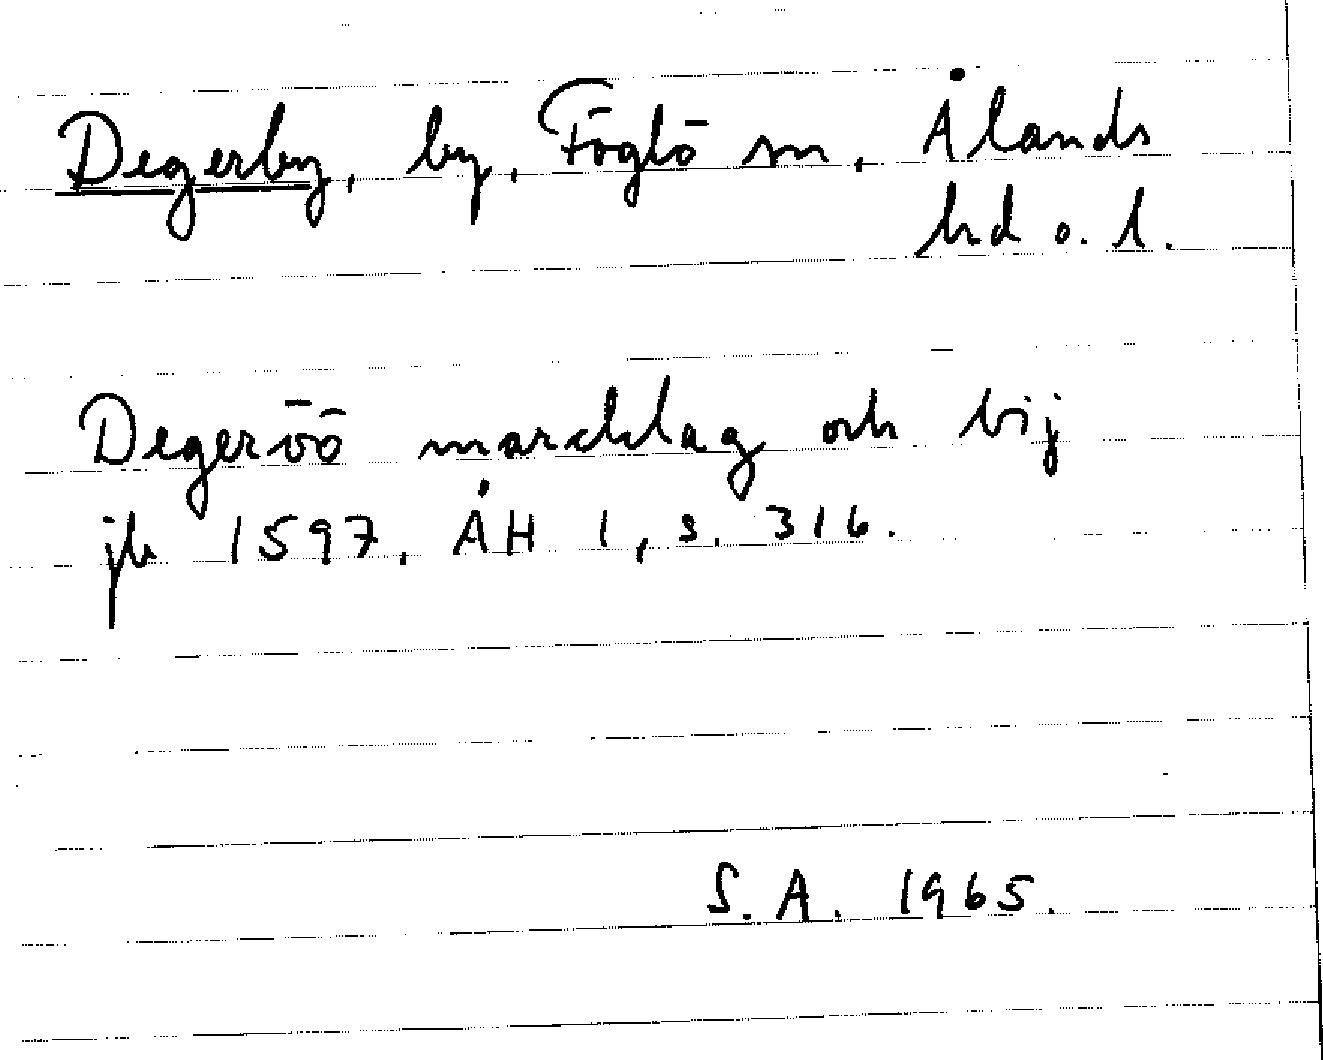 Degerby, by, Föglö sn, Ålands
hd o. l.
Degeröö marcklag och bij
jb 1597. ÅH 1, s. 316.
S. A. 1965.